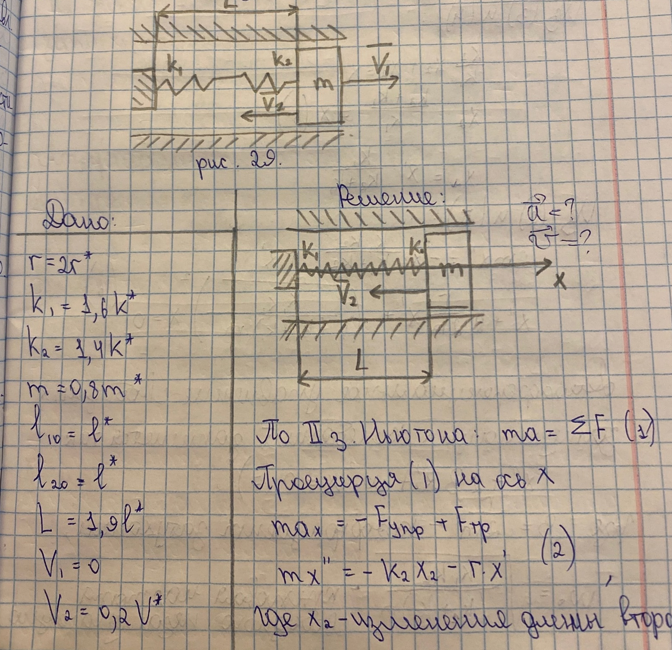 L
k₁ k₂ m V₁
V₂
рис. 29.
Дано: Решение:
r=2r*
k₁=1,6k*
k₂=1,4k*
m=0,8m*
l₁₀=l*
l₂₀=l*
L=1,9l*
V₁=0
V₂=0,2V*
a=?
v=?
k₁ k₂ m
V₂ x
L
По II з. Ньютона: ma=ΣF (1)
Проецируя (1) на ось x
maₓ=-Fупр+Fтр
mx''=-k₂x₂-r·x' (2)
где x₂-изменения длины второ